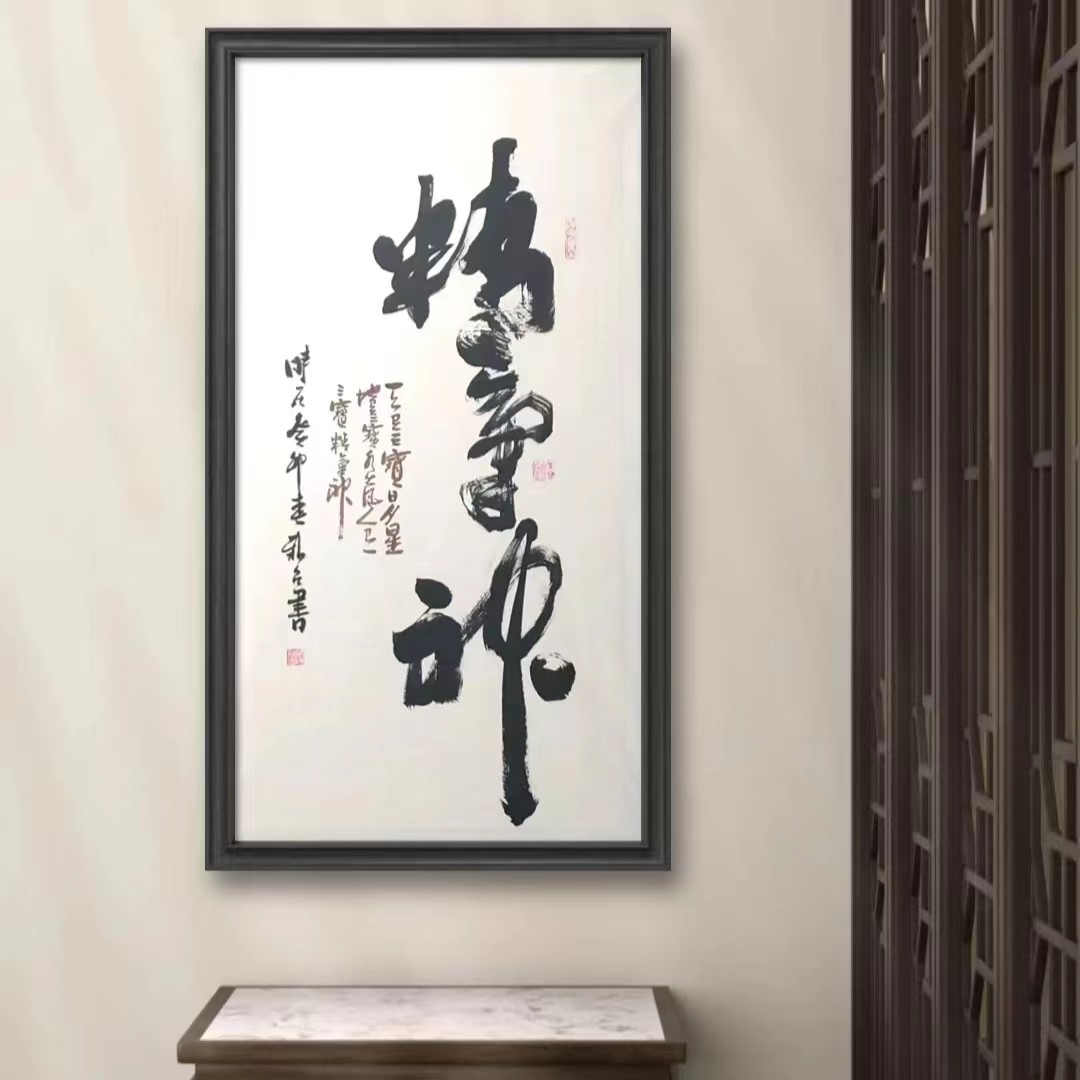 精氣神
天有三寶日月星
地有三寶水火風人有
三寶精氣神
時在癸卯春書